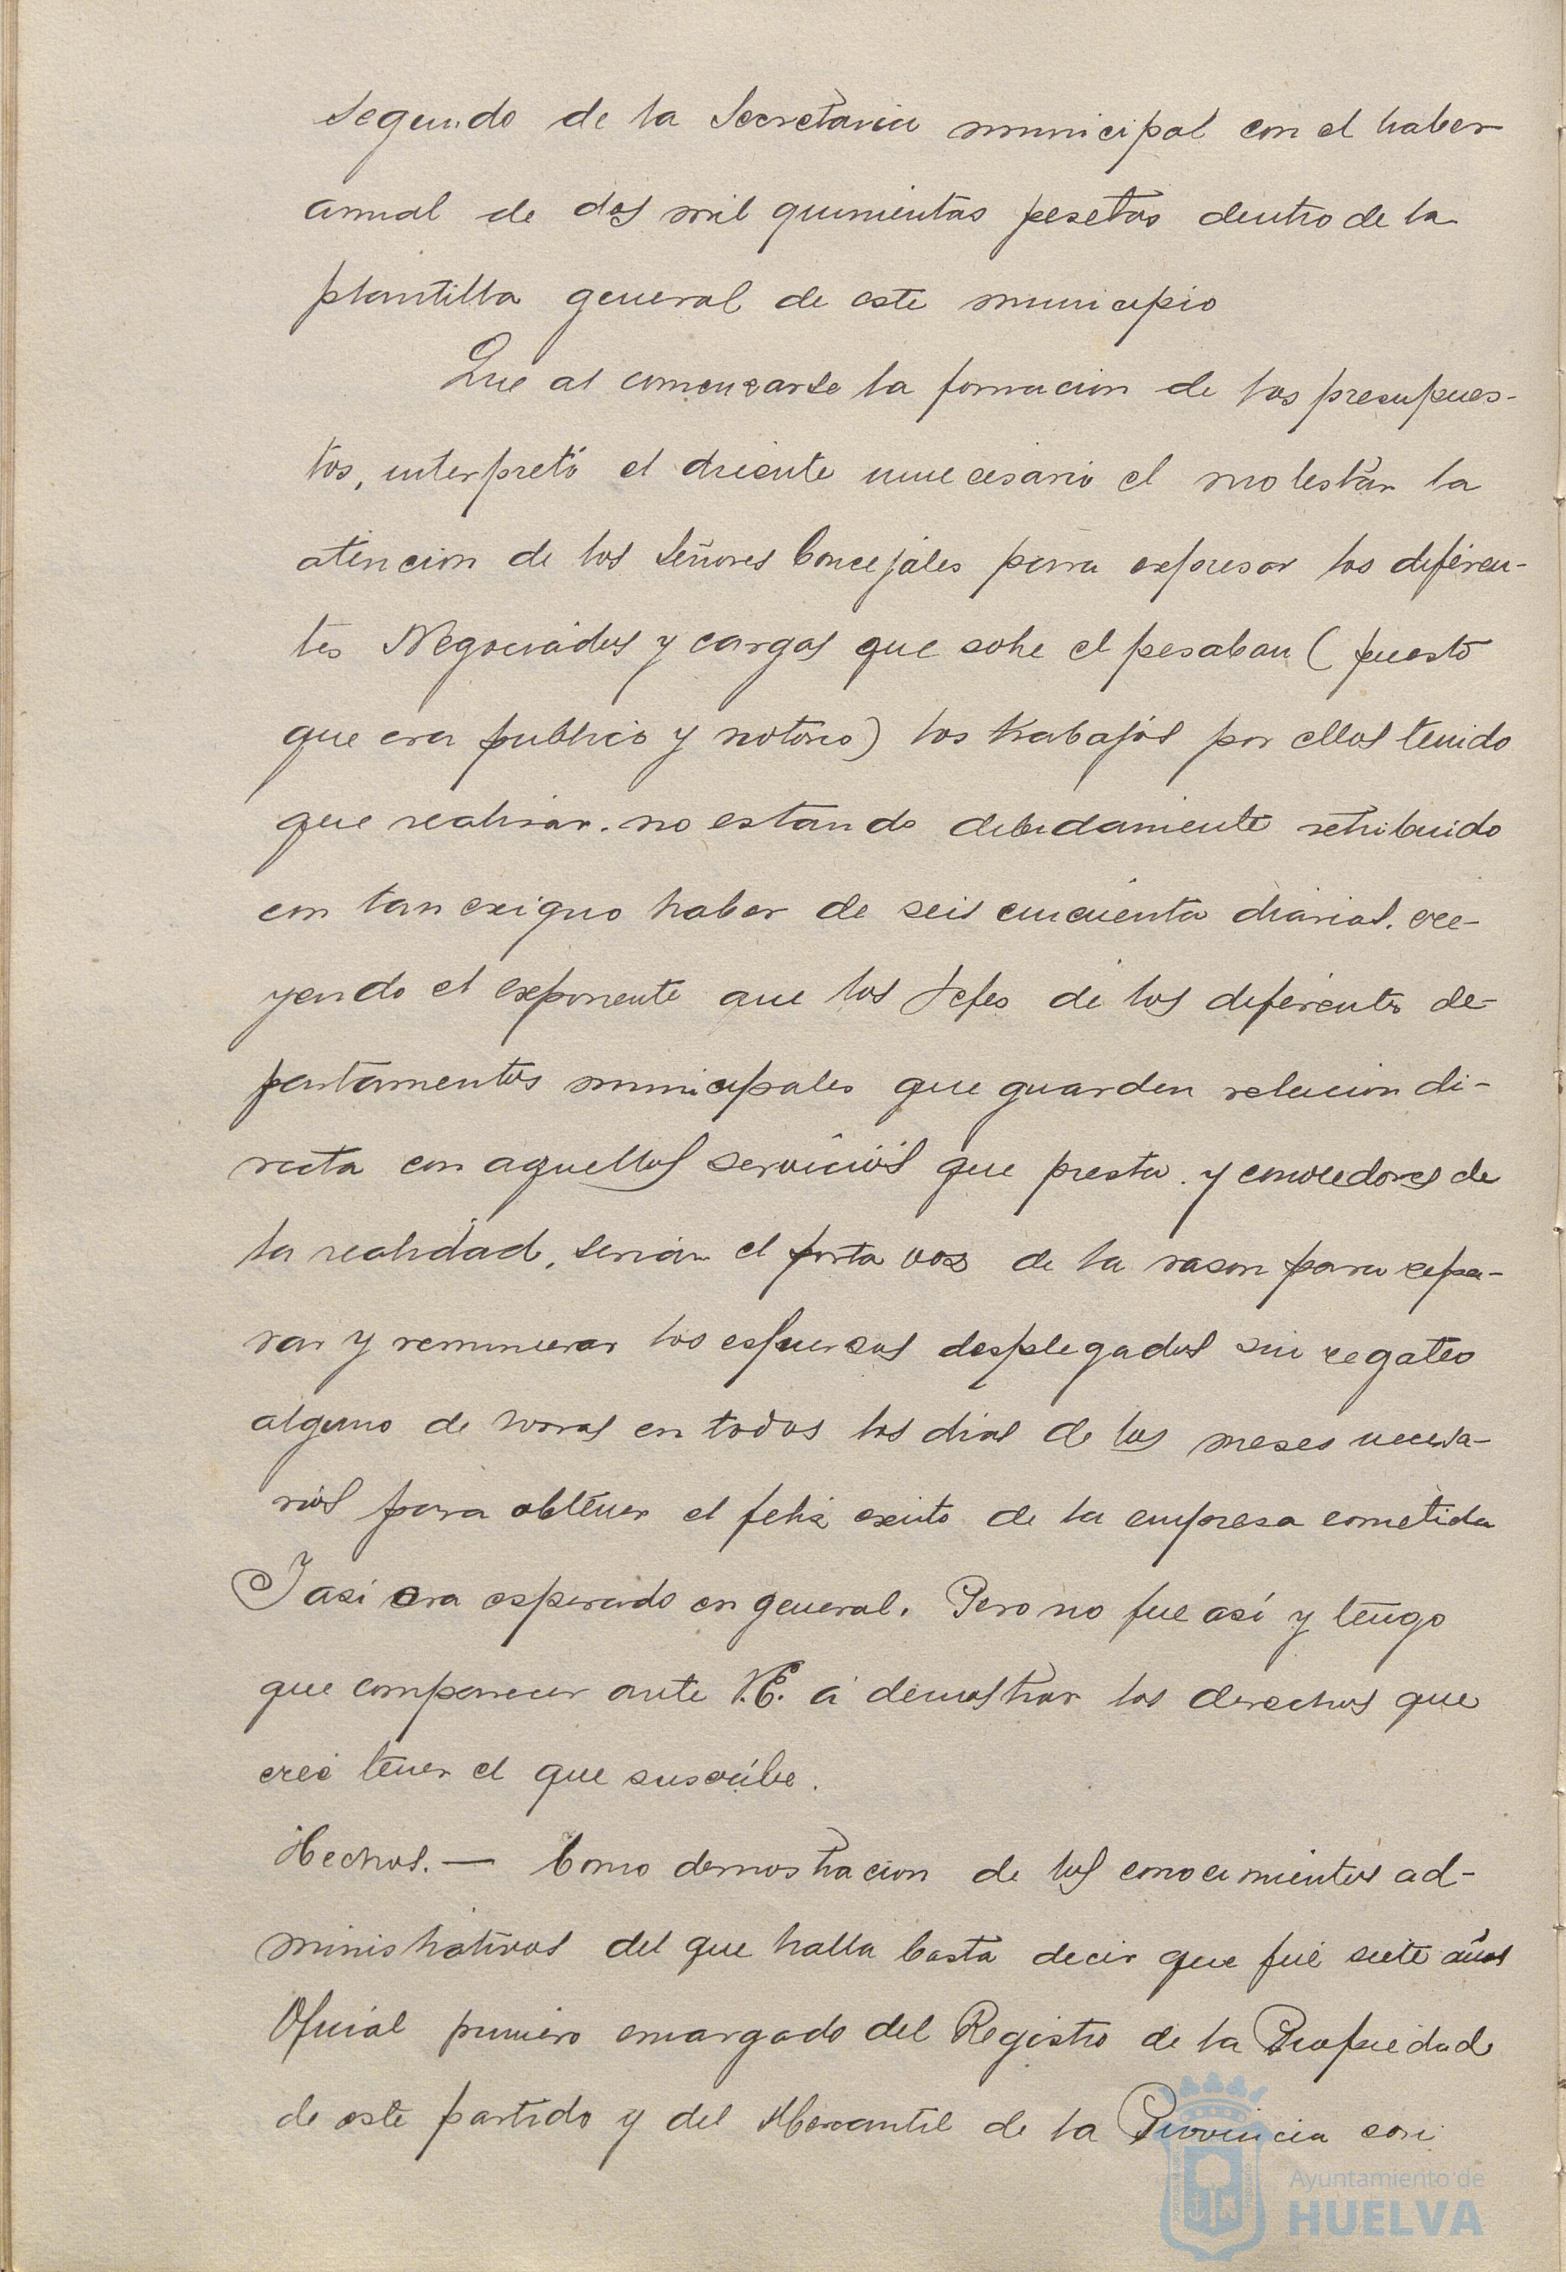 segundo de la Secretaria municipal con el haber
anual de dos mil quinientas pesetas dentro de la
plantilla general de este municipio
Que al comenzarse la formacion de los presupues-
tos, interpretó el dicente innecesario el molestar la
atencion de los Señores Concejales para expresar los diferen-
tes Negociados y cargos que sobre el pesaban (puesto
que era publico y notorio) los trabajos por ellos tenido
que realizar. no estando debidamente retribuido
con tan exiguo haber de seis cincuenta diarias. cre-
yendo el exponente que los Jefes de los diferentes de-
partamentos municipales que guarden relacion di-
recta con aquellos servicios que presta. y conocedores de
la realidad, serian el porta voz de la razon para repa-
rar y remunerar los esfuerzos desplegados sin regateo
alguno de horas en todos los dias de los meses necesa-
rios para obtener el feliz exito de la empresa cometida
Y asi era esperado en general. Pero no fue así y tengo
que comparecer ante V.E. á demostrar los derechos que
creé tener el que suscribe.
Hechos. — Como demostracion de los conocimientos ad-
ministrativos del que habla basta decir que fué siete años
Oficial primero encargado del Registro de la Propiedad
de este partido y del Mercantil de la Provincia con
Ayuntamiento de
HUELVA